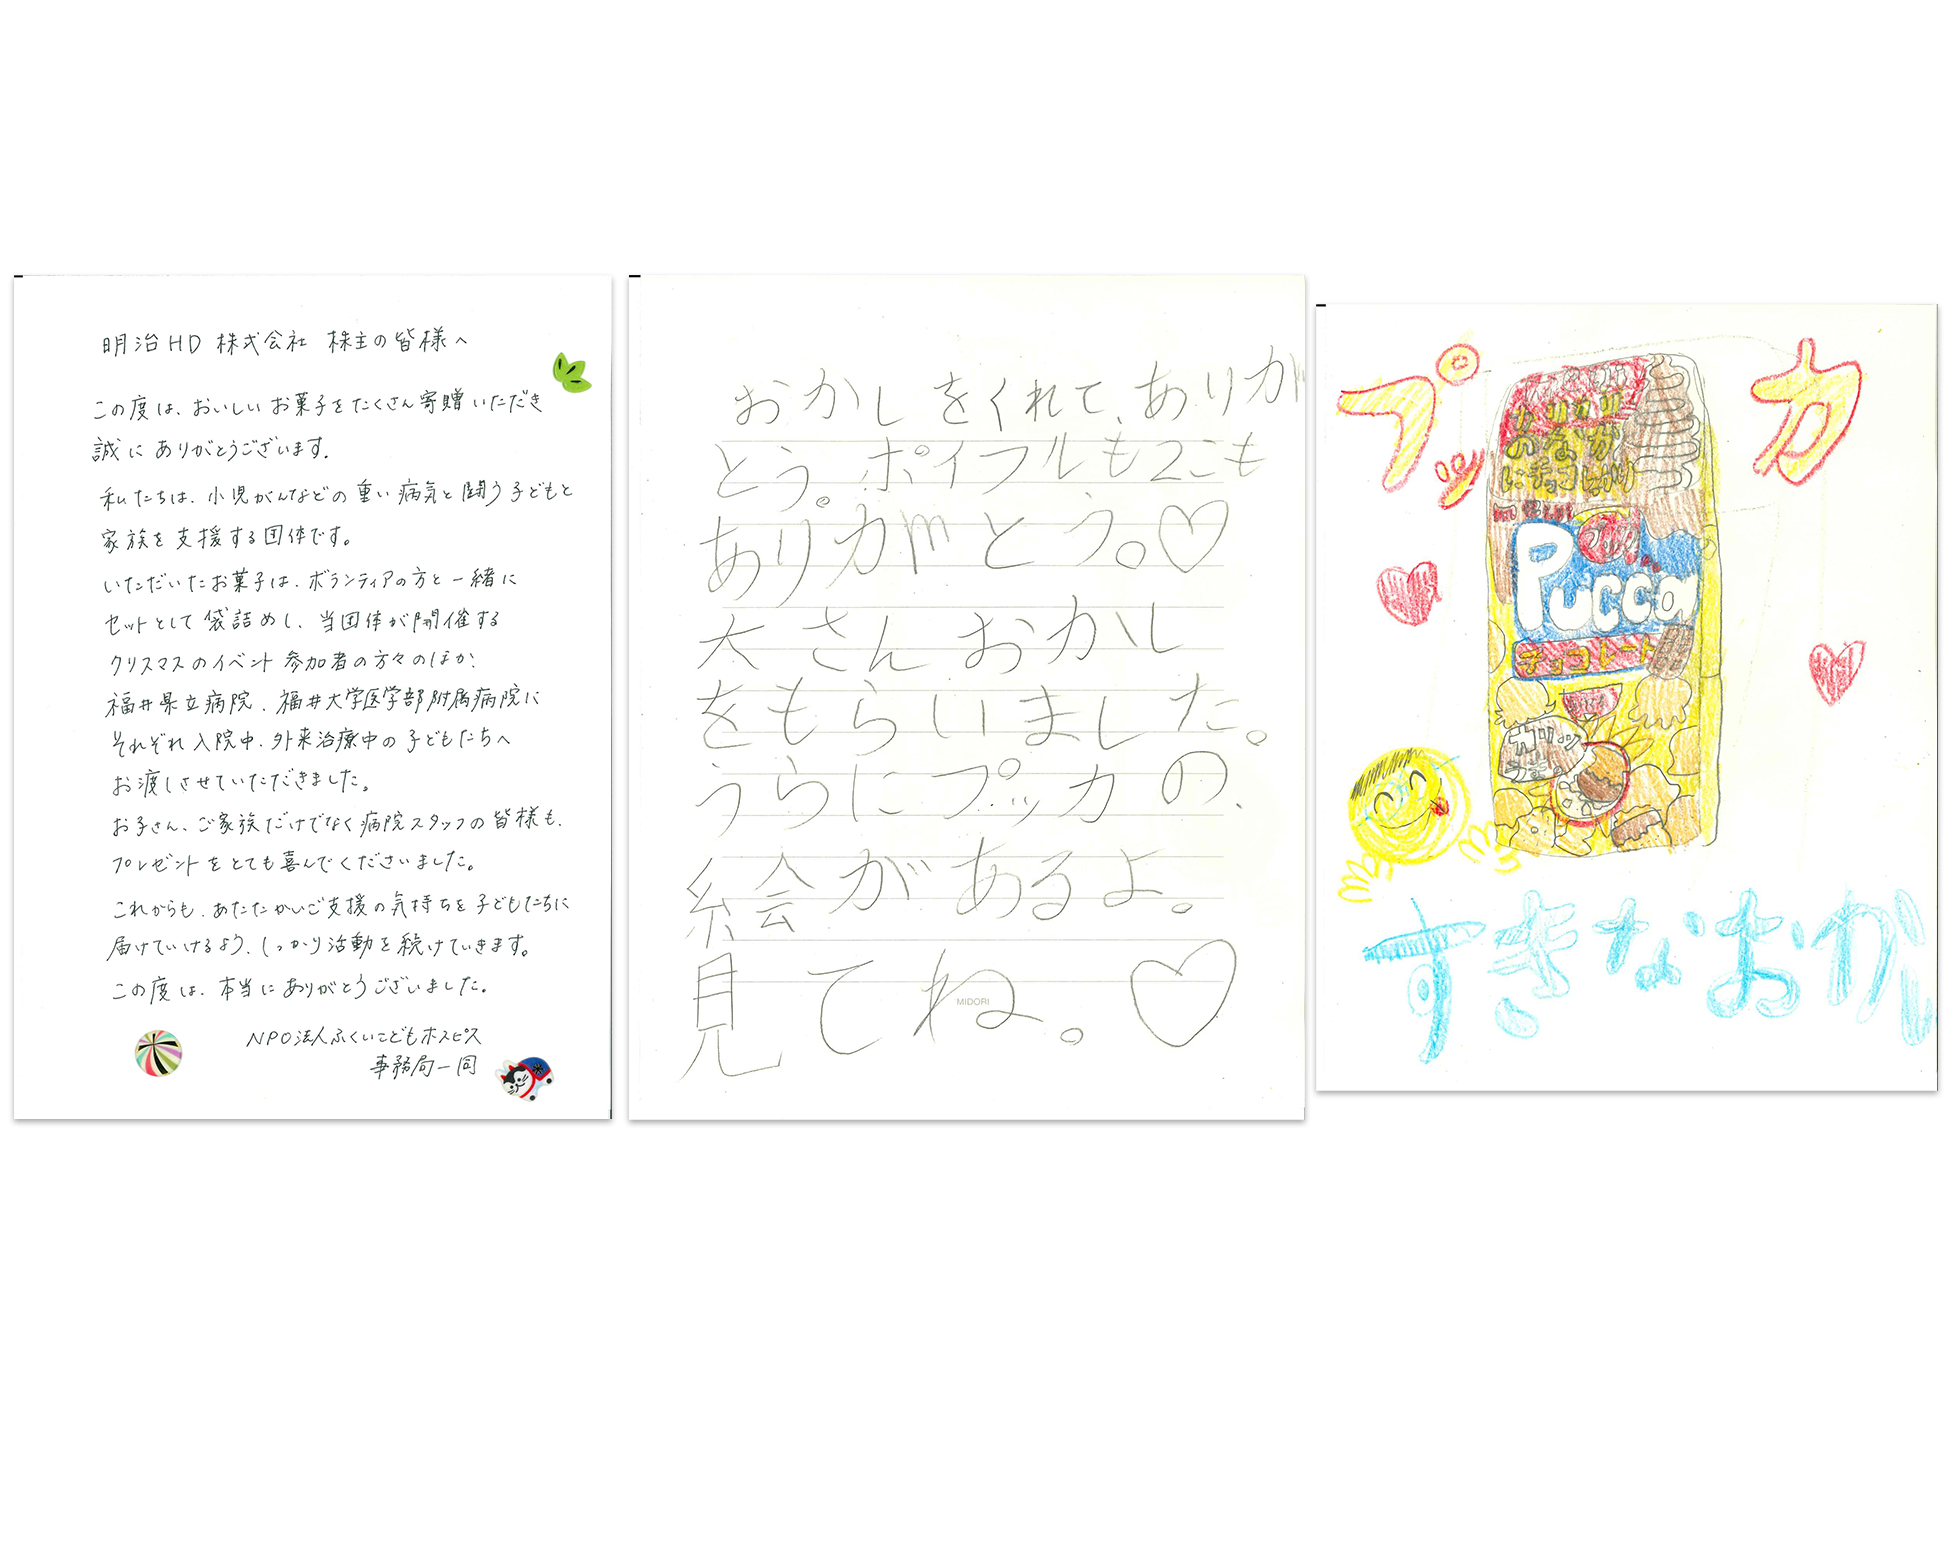 明治HD 株式会社 株主の皆様へ
この度は、おいしいお菓子をたくさん寄贈いただき
誠にありがとうございます。
私たちは、小児がんなどの重い病気と闘う子どもと
家族を支援する団体です。
いただいたお菓子は、ボランティアの方と一緒に
セットとして袋詰めし、当団体が開催する
クリスマスのイベント参加者の方々のほか、
福井県立病院、福井大学医学部附属病院に
それぞれ入院中、外来治療中の子どもたちへ
お渡しさせていただきました。
お子さん、ご家族だけでなく病院スタッフの皆様も、
プレゼントをとても喜んでくださいました。
これからも、あたたかいご支援の気持ちを子どもたちに
届けていけるよう、しっかり活動を続けていきます。
この度は、本当にありがとうございました。
NPO法人ふくいこどもホスピス
事務局一同
おかしをくれて、ありが
とう。ポイフルも2こも
ありがとう。♡
大さんおかし
をもらいました。
うらにプッカの、
絵があるよ。
見てね。♡
MIDORI
プッカ
カリカリ
のなか
にチョコ
プッカ
Pucca
チョコレート
カリッ
すきなおかし